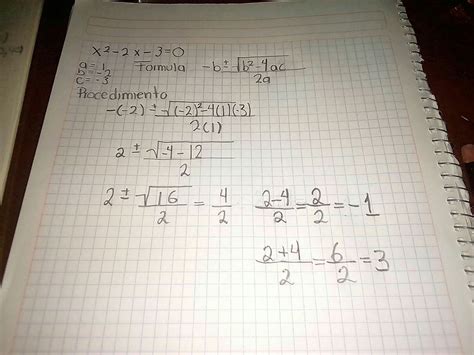 x²-2x-3=0
a=1 Formula -b±√b²-4ac / 2a
b=-2
c=-3
Procedimiento
-(-2)±√(-2)²-4(1)(-3) / 2(1)
2±√-4-12 / 2
2±√16 / 2 = 4/2 2-4/2 = 2/2 = -1
2+4/2 = 6/2 = 3